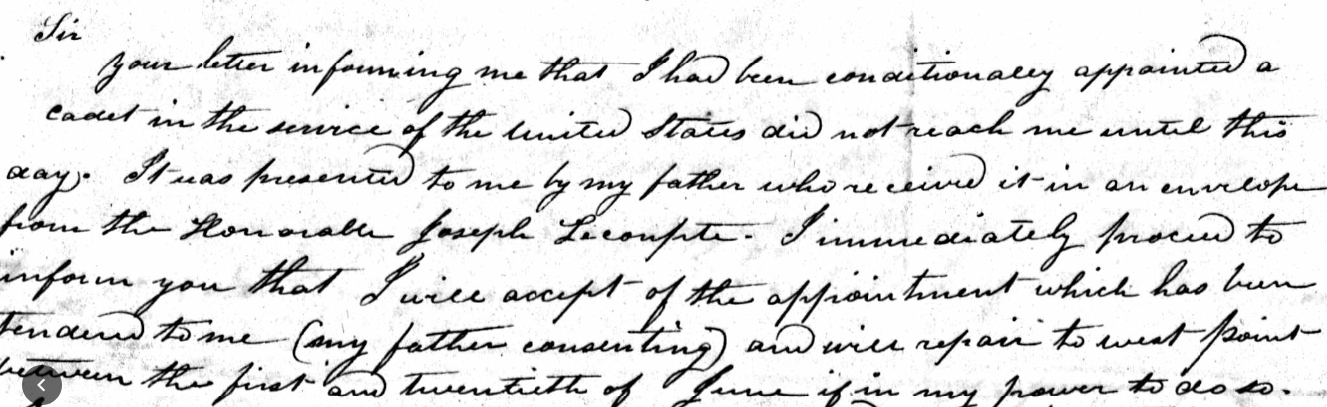 Sir
your letter informing me that I had been conditionally appointed a
cadet in the service of the United States did not reach me until this
day. It was presented to me by my father who received it in an envelope
from the Honorable Joseph Lecompte. I immediately proceed to
inform you that I will accept of the appointment which has been
tendered to me (my father consenting) and will repair to west point
between the first and twentieth of June if in my power to do so.